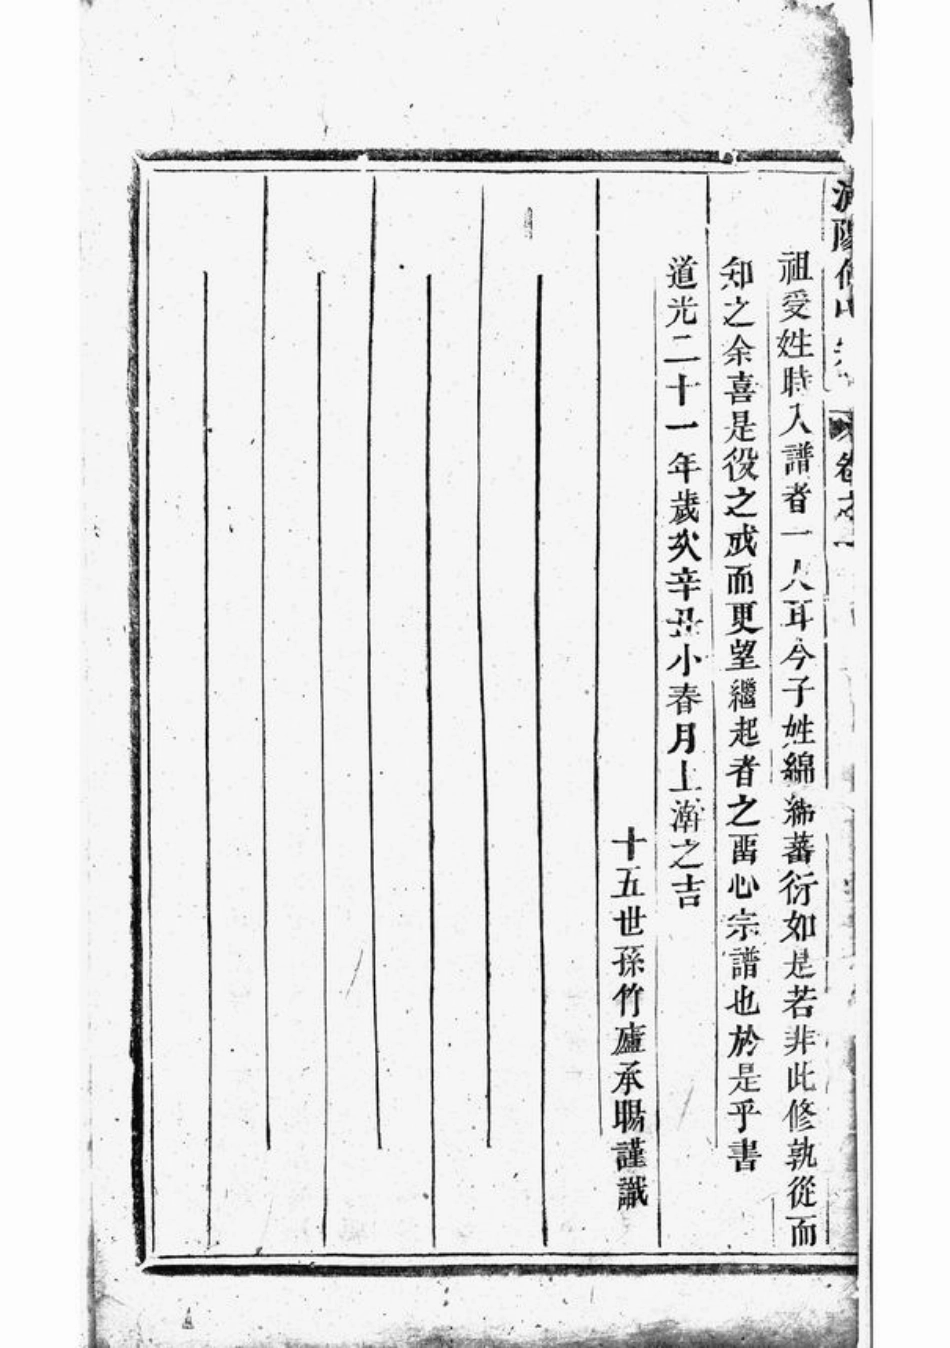 陽 卷之一
祖受姓時入譜者一人耳今子姓綿綿蕃衍如是若非此修孰從而
知之余喜是役之成而更望繼起者之畱心宗譜也於是乎書
道光二十一年歲次辛丑小春月上澣之吉
十五世孫竹廬承賜謹識